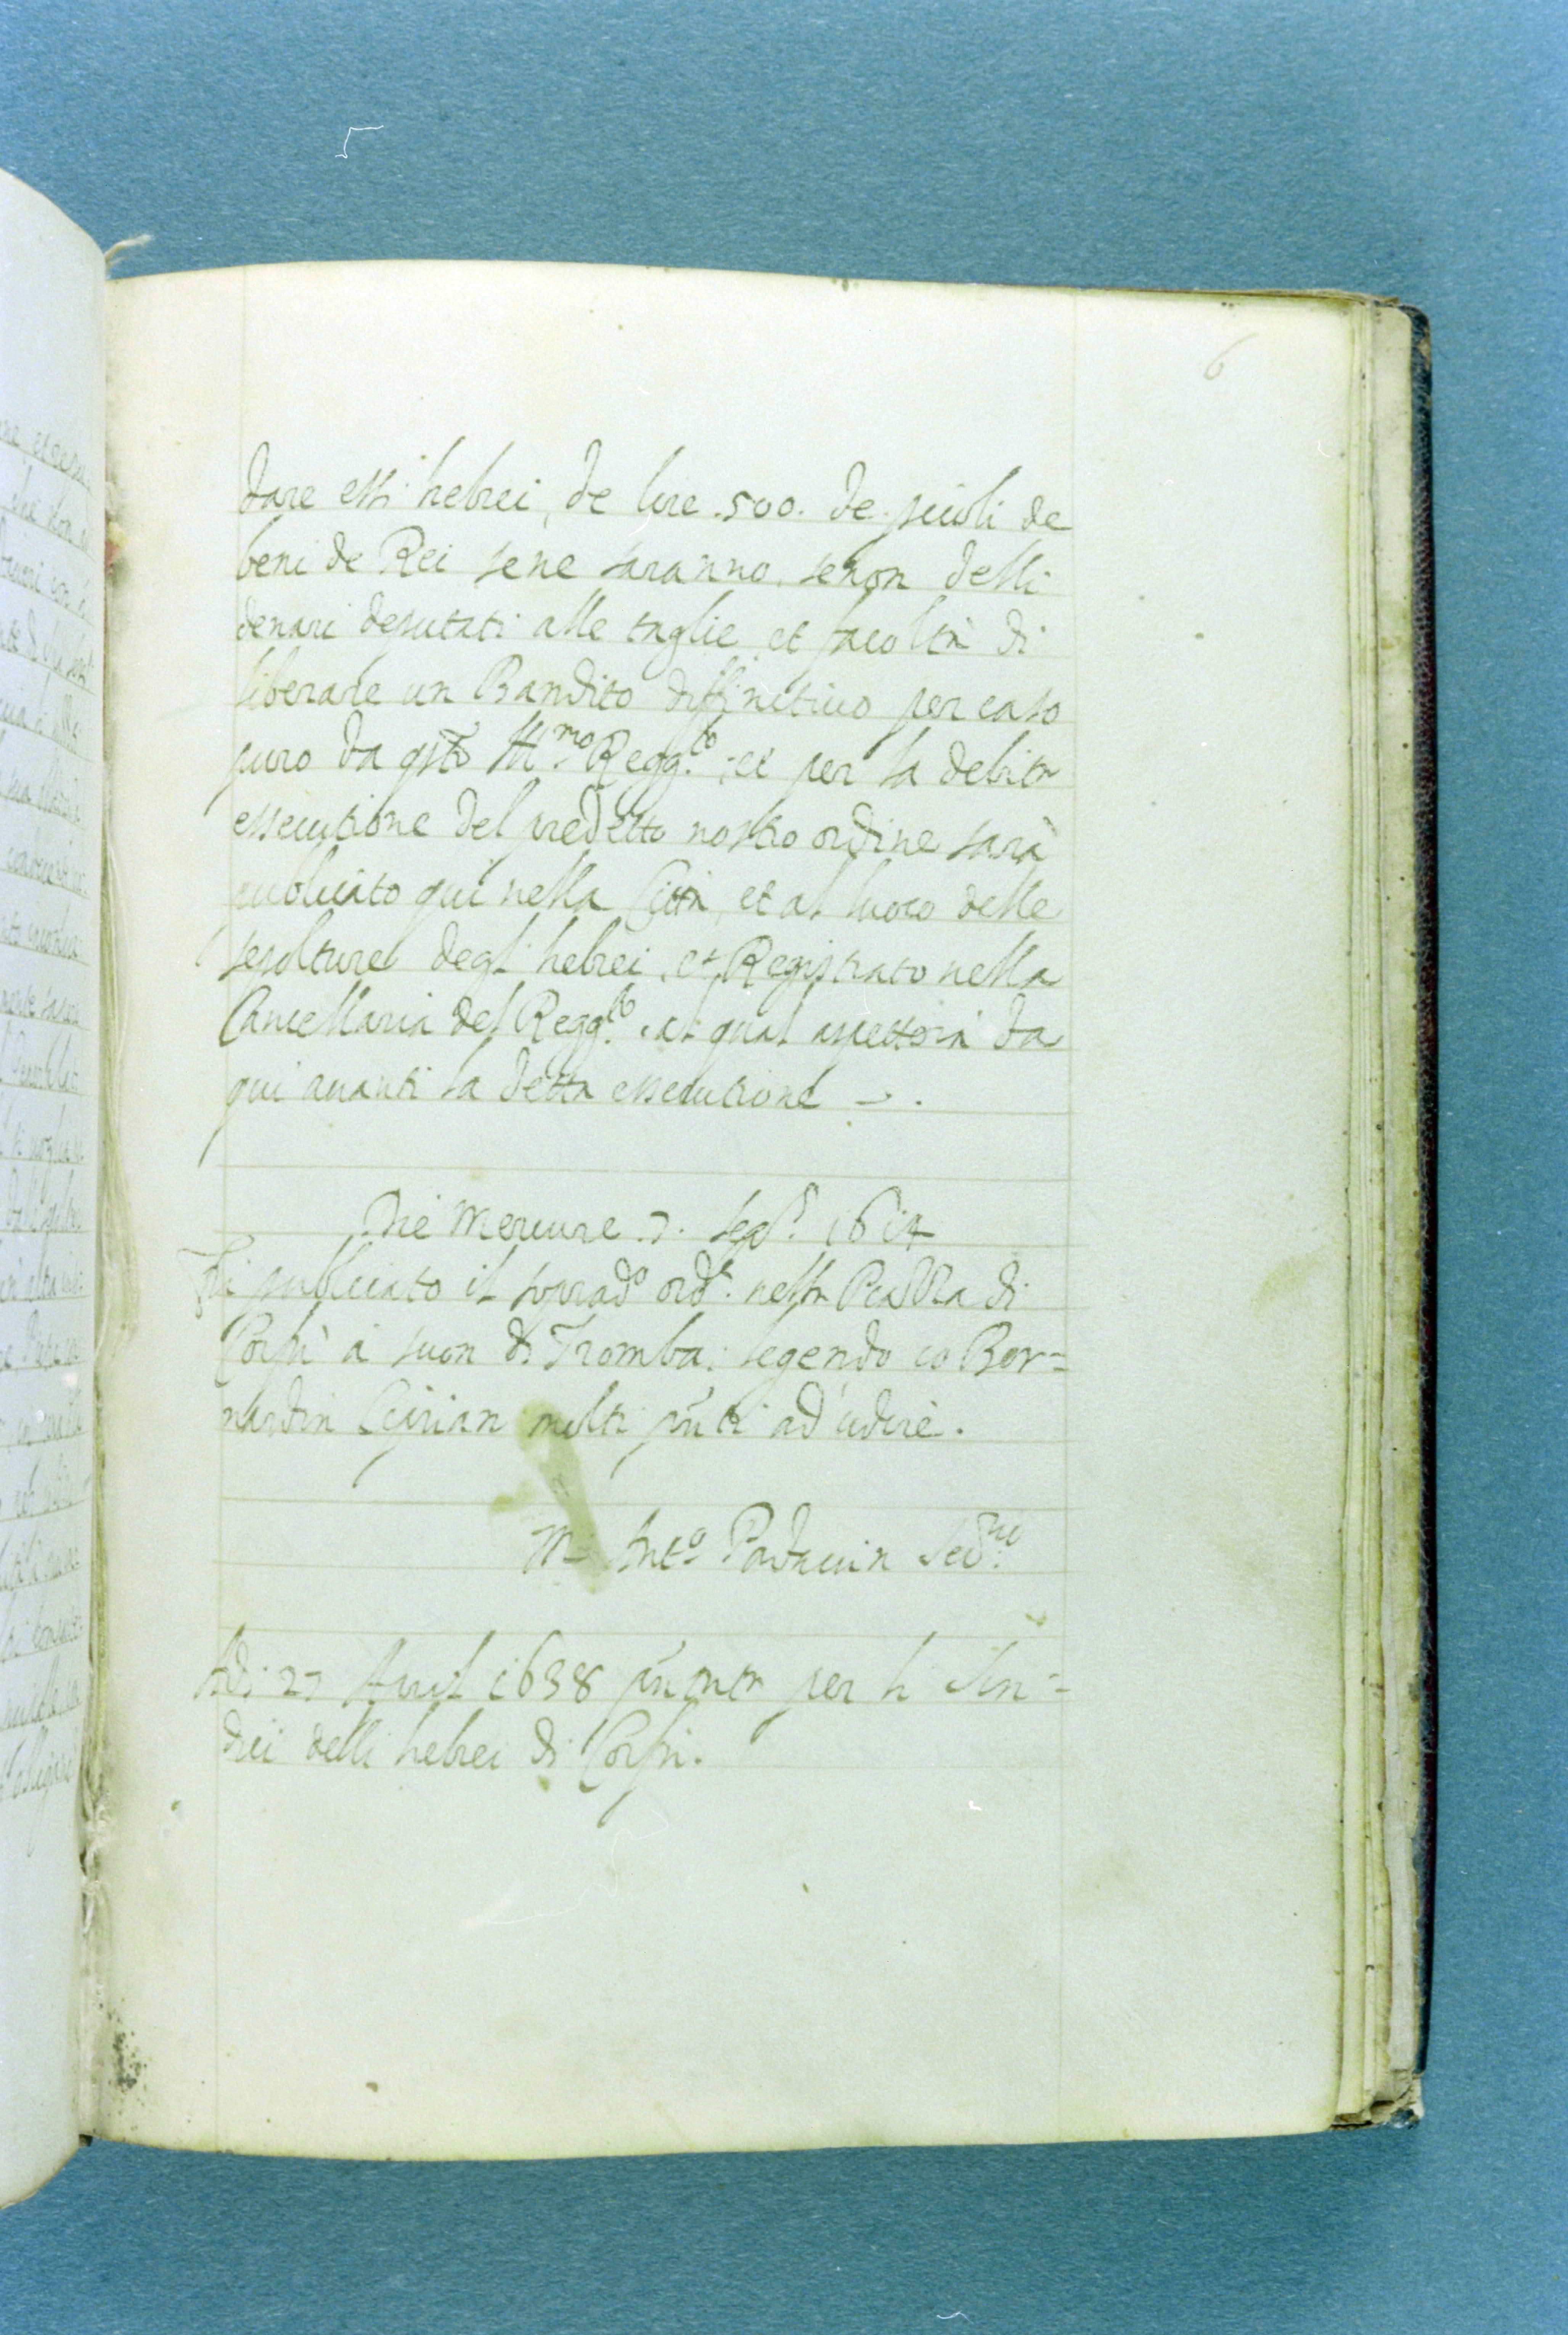 6
dare essi hebrei, de lire .500. de picoli de
beni de Rei sene saranno, senon delli
denari deputati alle taglie, et facoltà di
liberare un Bandito diffinitiuo per caso
puro da qsto Ill.mo Regg.to; et per la debita
essecutione del predetto nostro ordine sarà
publicato qui nella Città, et al luoco delle
sepolture degli hebrei, et Registrato nella
Cancellaria del Regg.to, al qual aspettarà da
qui auanti la detta essecutione
Die Mercure .7. 1614
Fù publicato il soprado ord.e nella Piazza di
Corfù à suon di Tromba: legendo io Ber=
nardin molti pnti ad udire.
Anto
Adi 27 Auril 1638 pntata per li Sin=
dici delli hebrei di Corfù.